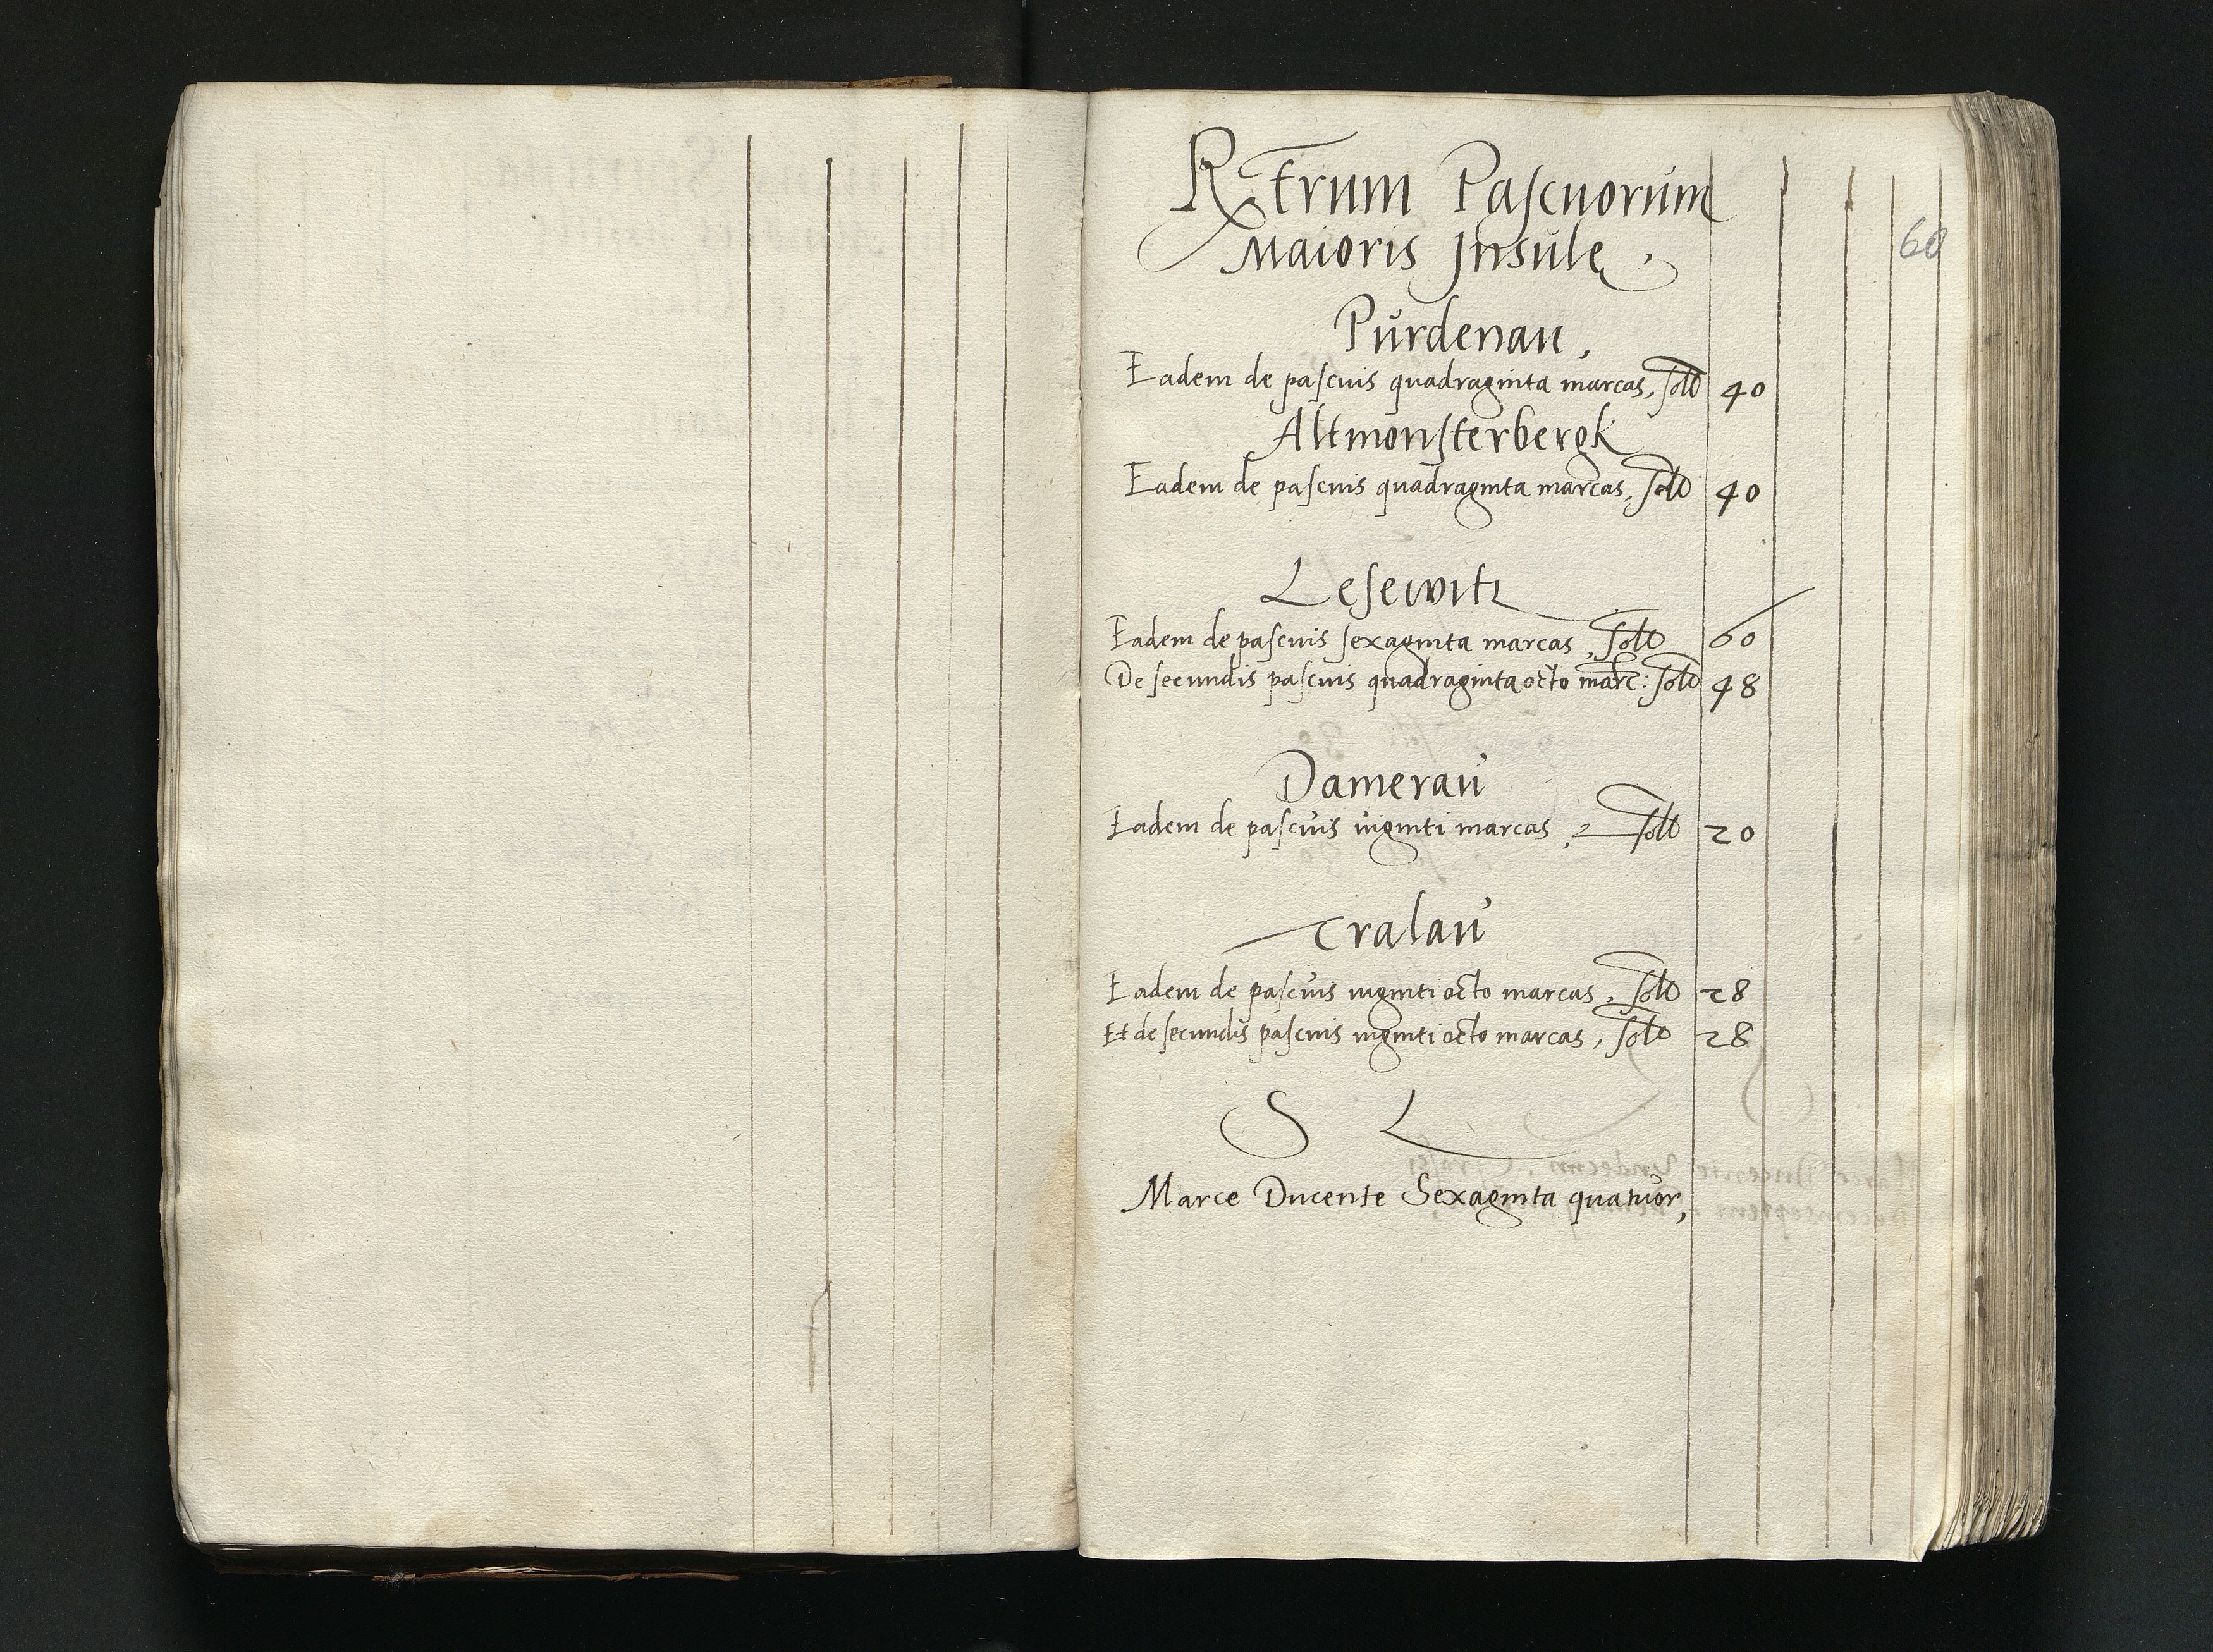 Rtrum Pascuorum
Maioris Insule.
60
Purdenau,
Eadem de pascuis quadraginta marcas, solt 40
Altmonsterbergk
Eadem de pascuis quadraginta marcas, solt 40
Lesewitz
Eadem de pascuis sexaginta marcas, solt 60
De secundis pascuis quadraginta octo marc: solt 48
Damerau
Eadem de pascuis viginti marcas, solt 20
Tralau
Eadem de pascuis viginti octo marcas, solt 28
Et de secundis pascuis viginti octo marcas, solt 28
S L
Marce Ducente Sexaginta quatuor,